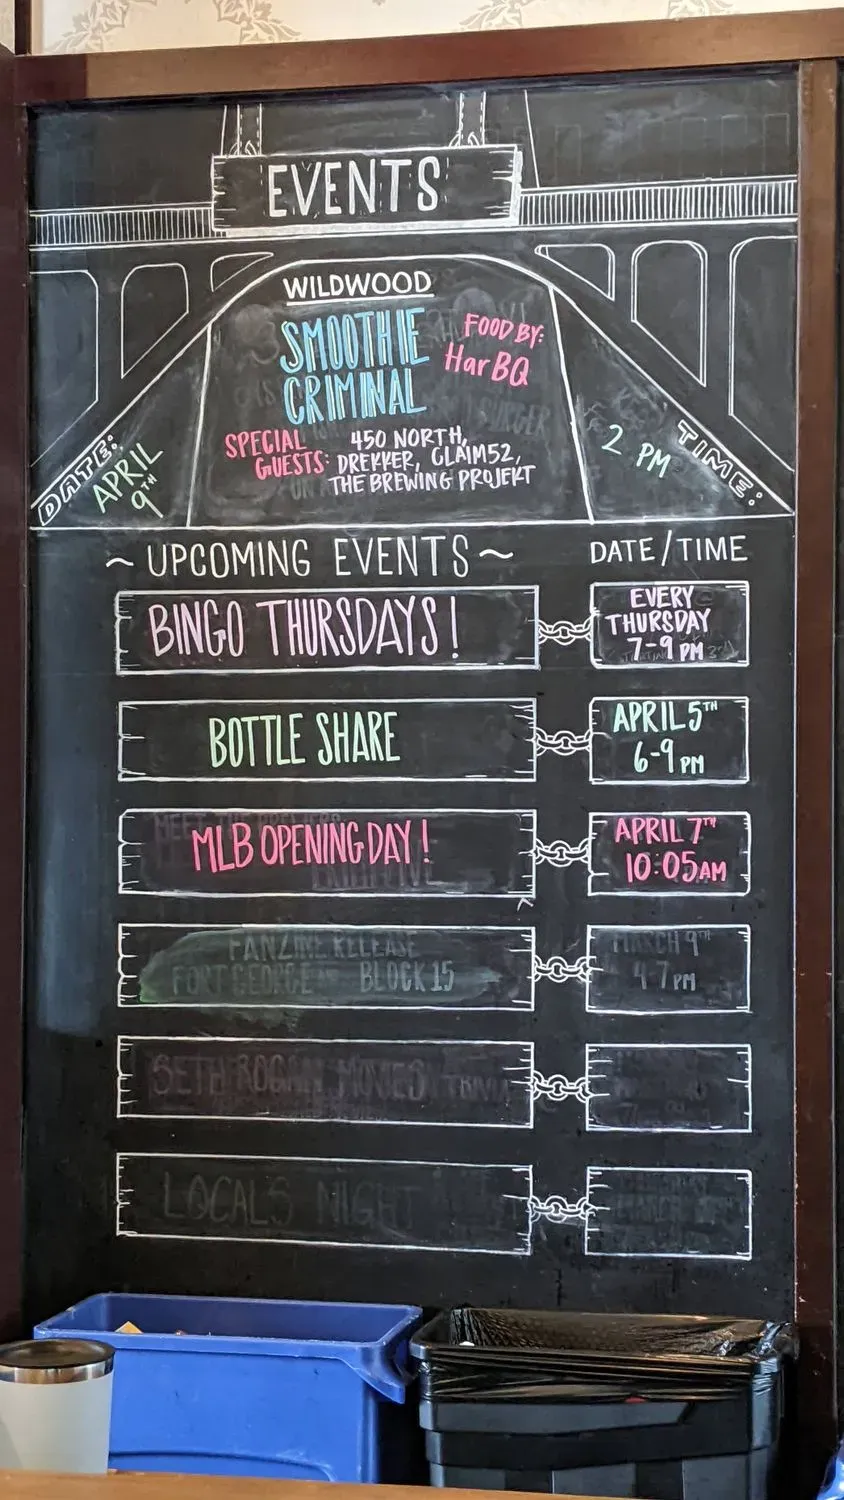 EVENTS
WILDWOOD
SMOOTHIE
CRIMINAL
FOOD BY:
HarBQ
SPECIAL
GUESTS:
450 NORTH,
DREKKER, CLAIM52,
THE BREWING PROJEKT
DATE:
APRIL
9TH
TIME:
2 PM
~ UPCOMING EVENTS ~
DATE/TIME
BINGO THURSDAYS!
EVERY
THURSDAY
7-9 PM
BOTTLE SHARE
APRIL 5TH
6-9 PM
MLB OPENING DAY!
APRIL 7TH
10:05AM
FANZINE RELEASE
FORT GEORGE BLOCK 15
MARCH 9TH
4 7 PM
SETH ROGAN MOVIES TRIVIA
LOCALS NIGHT